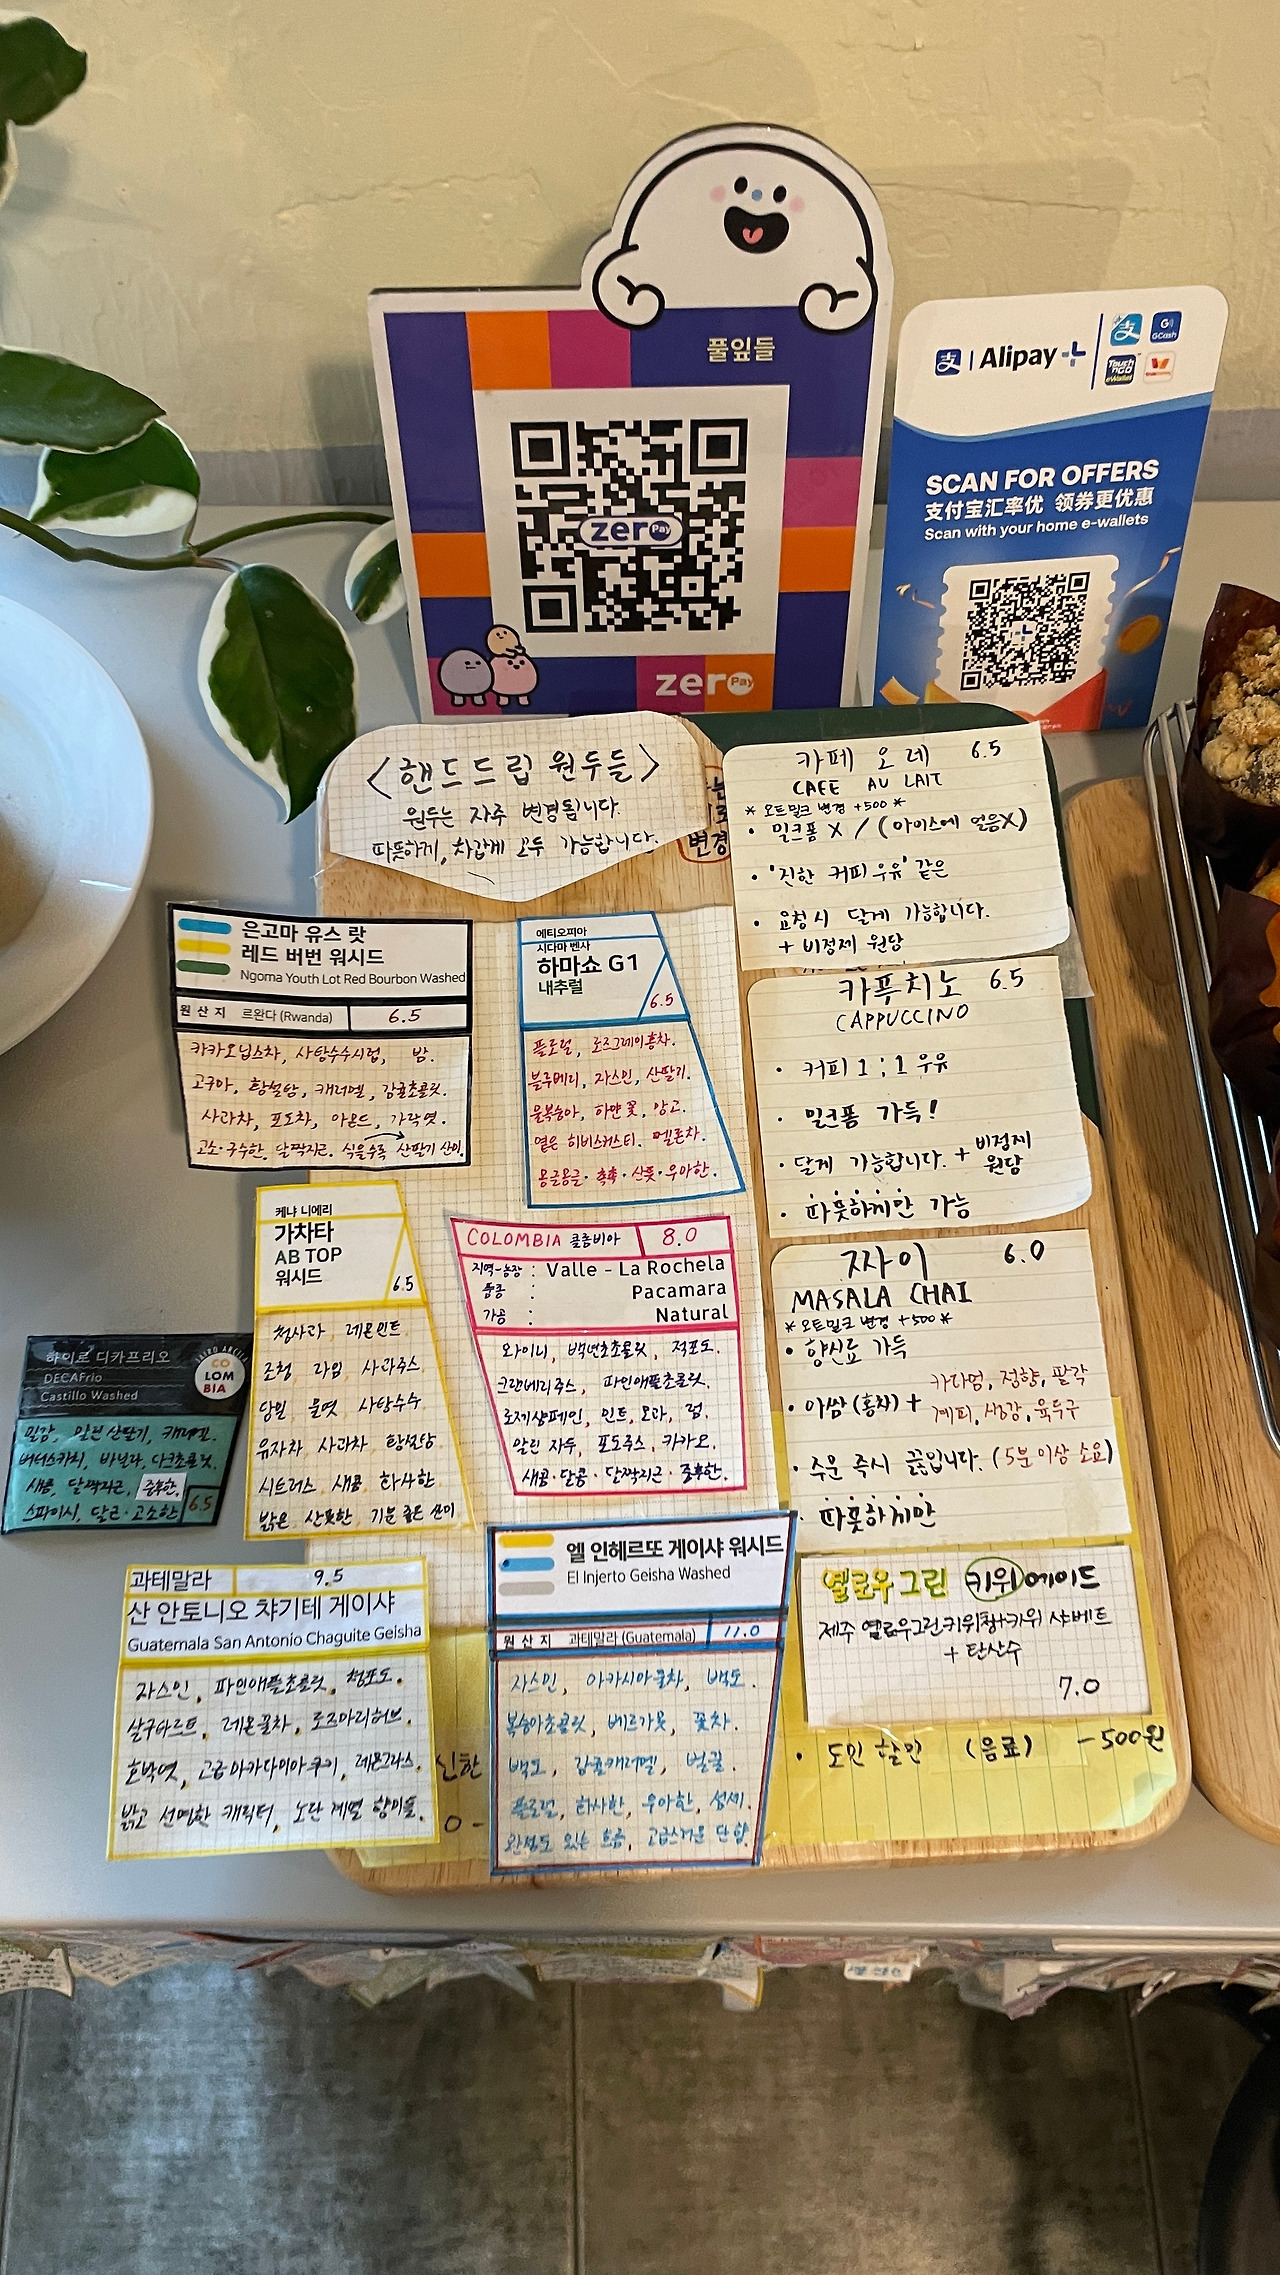 풀잎들
zero Pay
zero Pay
支 | Alipay+
GCash
Touch 'n GO
eWallet
SCAN FOR OFFERS
支付宝汇率优 领券更优惠
Scan with your home e-wallets
<핸드드립 원두들>
원두는 자주 변경됩니다.
따뜻하게, 차갑게 모두 가능합니다.
변경
은고마 유스 랏
레드 버번 워시드
Ngoma Youth Lot Red Bourbon Washed
원산지 르완다 (Rwanda) 6.5
카카오닙스차, 사탕수수시럽, 밤.
고구마, 황설탕, 캐러멜, 감귤초콜릿.
사과차, 포도차, 아몬드, 가락엿.
고소·구수한. 달짝지근. 식을수록 산딸기 산미.
에티오피아
시다마 벤사
하마쇼 G1
내추럴
6.5
플로럴, 로즈그레이홍차.
블루베리, 자스민, 산딸기.
물복숭아, 하얀 꽃, 망고.
옅은 히비스커스티. 멜론차.
몽글몽글·촉촉·산뜻·우아한.
케냐 니에리
가차타
AB TOP
워시드
6.5
청사과 레몬민트
조청 라임 사과주스
당밀 물엿 사탕수수
유자차 사과차 황설탕
시트러스 새콤 화사한
밝은 산뜻한 기분 좋은 산미
COLOMBIA 콜롬비아 8.0
지역-농장 : Valle - La Rochela
품종 : Pacamara
가공 : Natural
와이니, 백년초초콜릿, 적포도.
크랜베리주스, 파인애플초콜릿.
로제샹페인, 민트, 모과, 럼.
말린 자두, 포도주스, 카카오.
새콤·달콤·달짝지근·중후한.
하이로 디카프리오
DECAFrio
Castillo Washed
JAIRO ARCILA
COLOMBIA
밀감, 말린 산딸기, 캐러멜.
버터스카치, 바닐라, 다크초콜릿.
새콤, 달짝지근, 중후한,
스파이시, 달근·고소한
6.5
과테말라 9.5
산 안토니오 챠기테 게이샤
Guatemala San Antonio Chaguite Geisha
자스민, 파인애플초콜릿, 청포도.
살구타르트, 레몬꿀차, 로즈마리허브.
호박엿, 고급마카다미아쿠키, 레몬그라스.
밝고 선명한 캐릭터, 노란 계열 향미들.
신한
엘 인헤르또 게이샤 워시드
El Injerto Geisha Washed
원산지 과테말라 (Guatemala) 11.0
자스민, 아카시아꿀차, 백도.
복숭아초콜릿, 베르가못, 꽃차.
백도, 감귤캐러멜, 벌꿀.
플로럴, 화사한, 우아한, 섬세.
완성도 있는 흐름, 고급스러운 단향.
카페 오레 6.5
CAFE AU LAIT
* 오트밀크 변경 +500 *
· 밀크폼 X / (아이스에 얼음X)
· '진한 커피우유' 같은
· 요청시 달게 가능합니다.
+ 비정제 원당
카푸치노 6.5
CAPPUCCINO
· 커피 1 : 1 우유
· 밀크폼 가득!
· 달게 가능합니다. + 비정제 원당
· 따뜻하게만 가능
짜이 6.0
MASALA CHAI
* 오트밀크 변경 +500 *
· 향신료 가득
· 아쌈 (홍차) + 카다멈, 정향, 팔각
계피, 생강, 육두구
· 주문 즉시 끓입니다. (5분 이상 소요)
· 따뜻하게만
옐로우그린 키위에이드
제주 옐로우그린키위청+키위 샤베트
+ 탄산수
7.0
· 도민 할인 (음료) -500원